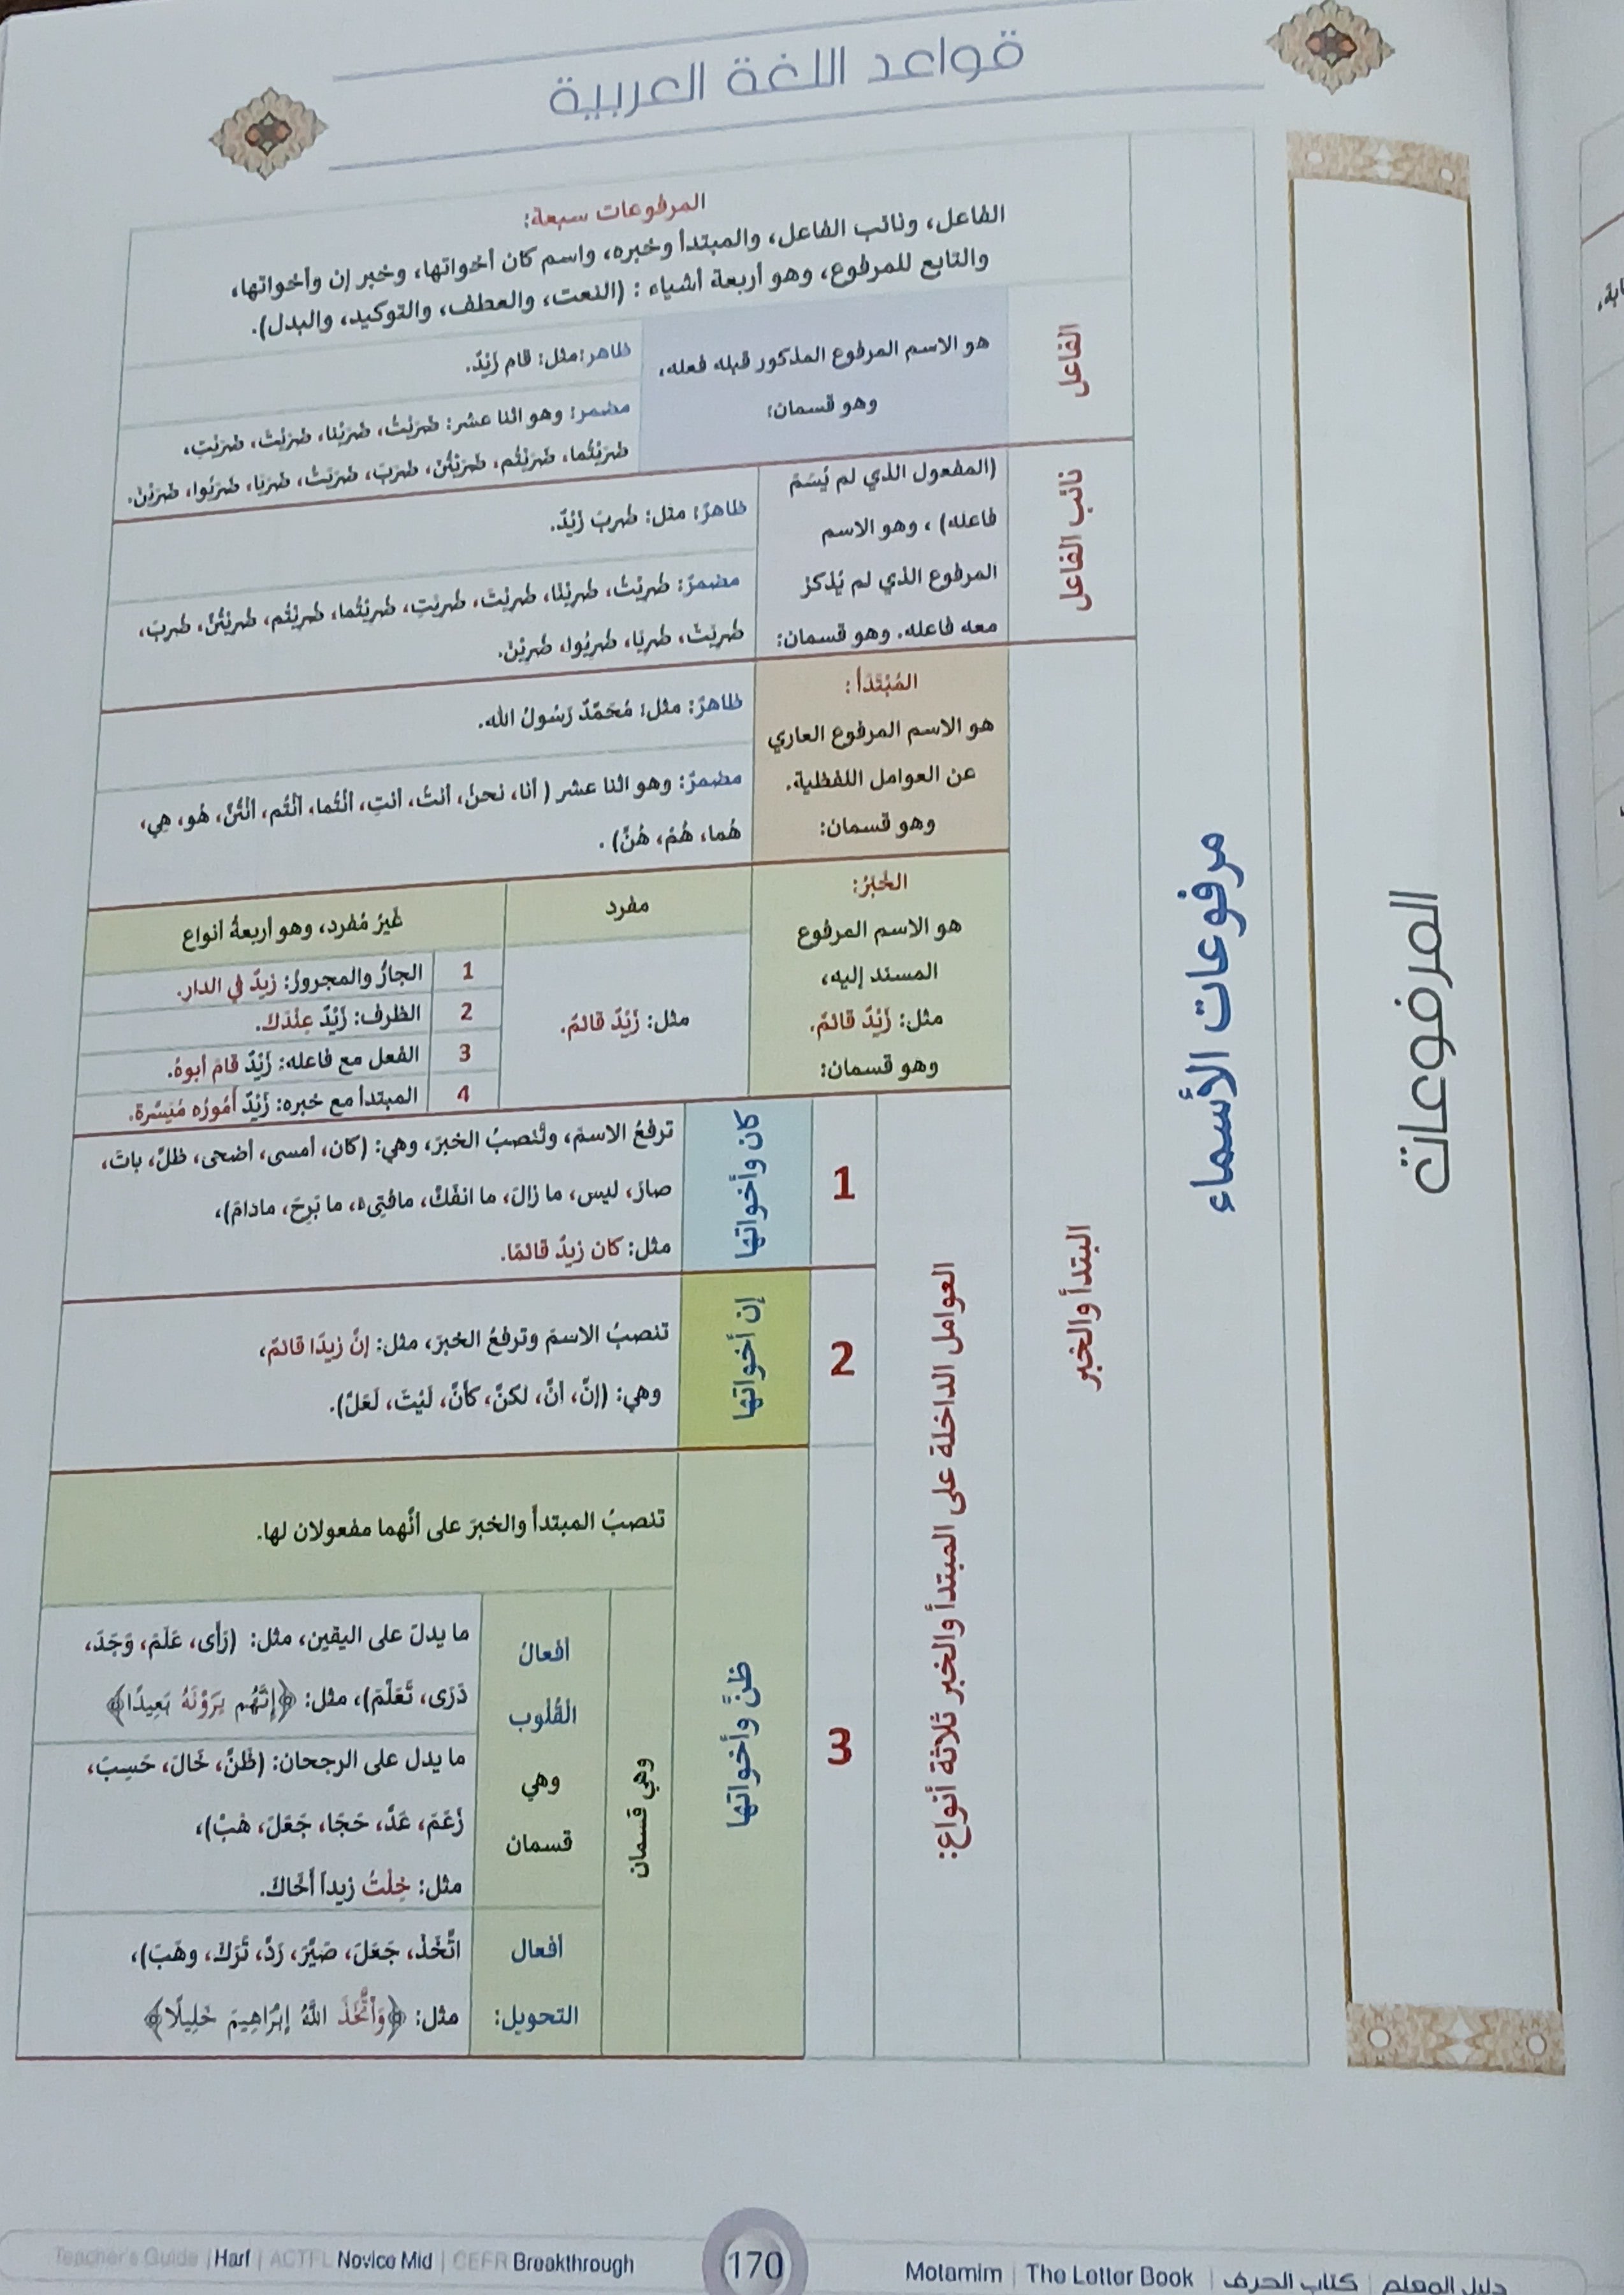 قواعد اللغة العربية
المرفوعات
مرفوعات الأسماء
المرفوعات سبعة:
الفاعل، ونائب الفاعل، والمبتدأ وخبره، واسم كان أخواتها، وخبر إن وأخواتها،
والتابع للمرفوع، وهو أربعة أشياء : (النعت، والعطف، والتوكيد، والبدل).
الفاعل
هو الاسم المرفوع المذكور قبله فعله،
وهو قسمان:
ظاهر: مثل: قام زَيْدٌ.
مضمر: وهو اثنا عشر: ضَرَبْتُ، ضَرَبْنا، ضَرَبْتَ، ضَرَبْتِ،
ضَرَبْتُما، ضَرَبْتُم، ضَرَبْتُنَّ، ضَرَبَ، ضَرَبَتْ، ضَرَبَا، ضَرَبُوا، ضَرَبْنَ.
نائب الفاعل
(المفعول الذي لم يُسَمَّ
فاعله) ، وهو الاسم
المرفوع الذي لم يُذكرْ
معه فاعله. وهو قسمان:
ظاهرٌ: مثل: ضُرِبَ زَيْدٌ.
مضمرٌ: ضُرِبْتُ، ضُرِبْنَا، ضُرِبْتَ، ضُرِبْتِ، ضُرِبْتُما، ضُرِبْتُم، ضُرِبْتُنَّ، ضُرِبَ،
ضُرِبَتْ، ضُرِبَا، ضُرِبُوا، ضُرِبْنَ.
البتدأ والخبر
المُبْتَدَأ :
هو الاسم المرفوع العاري
عن العوامل اللفظية.
وهو قسمان:
ظاهرٌ: مثل: مُحَمَّدٌ رَسُولُ الله.
مضمرٌ: وهو اثنا عشر ( أنا، نحنُ، أنتَ، أنتِ، أنْتُما، أنْتُم، أنْتُنَّ، هُو، هِي،
هُما، هُمْ، هُنَّ) .
الخَبَرُ:
هو الاسم المرفوع
المسند إليه،
مثل: زَيْدٌ قائمٌ.
وهو قسمان:
مفرد
مثل: زَيْدٌ قائمٌ.
غَيرُ مُفرد، وهو أربعةُ أنواع
1 الجارُّ والمجرورُ: زيدٌ في الدار.
2 الظرف: زَيْدٌ عِنْدَكَ.
3 الفعل مع فاعله: زَيْدٌ قَامَ أبوهُ.
4 المبتدأ مع خبره: زَيْدٌ أُمُورُه مُيَسَّرة.
العوامل الداخلة على المبتدأ والخبر ثلاثة أنواع:
1
كان وأخواتها
ترفعُ الاسمَ، وتَنصبُ الخبرَ، وهي: (كان، أمسى، أضحى، ظلَّ، باتَ،
صارَ، ليس، ما زالَ، ما انفَكَّ، مافَتِىء، ما بَرِحَ، مادامَ)،
مثل: كان زيدٌ قائمًا.
2
إن أخواتها
تنصبُ الاسمَ وترفعُ الخبرَ، مثل: إنَّ زيدًا قائمٌ،
وهي: (إنَّ، أنَّ، لكنَّ، كأنَّ، لَيْتَ، لَعَلَّ).
3
ظنَّ وأخواتها
تنصبُ المبتدأَ والخبرَ على أنَّهما مفعولان لها.
وهي قسمان
أفعالُ
القُلُوب
وهي
قسمان
ما يدلّ على اليقين، مثل: (رَأَى، عَلَمَ، وَجَدَ،
دَرَى، تَعَلَّمَ)، مثل: ﴿إِنَّهُم يَرَوْنَهُ بَعِيدًا﴾
ما يدل على الرجحان: (ظَنَّ، خَالَ، حَسِبَ،
زَعَمَ، عَدَّ، حَجَا، جَعَلَ، هَبْ)،
مثل: خِلْتُ زيداً أَخَاكَ.
أفعال
التحويل:
اتَّخَذَ، جَعَلَ، صَيَّرَ، رَدَّ، تَرَكَ، وهَبَ)،
مثل: ﴿وَاتَّخَذَ اللَّهُ إِبْرَاهِيمَ خَلِيلًا﴾
Teacher's Guide | Harf | ACTFL Novice Mid | CEFR Breakthrough
170
Motamim | The Letter Book | كتاب الحرف | دليل المعلم